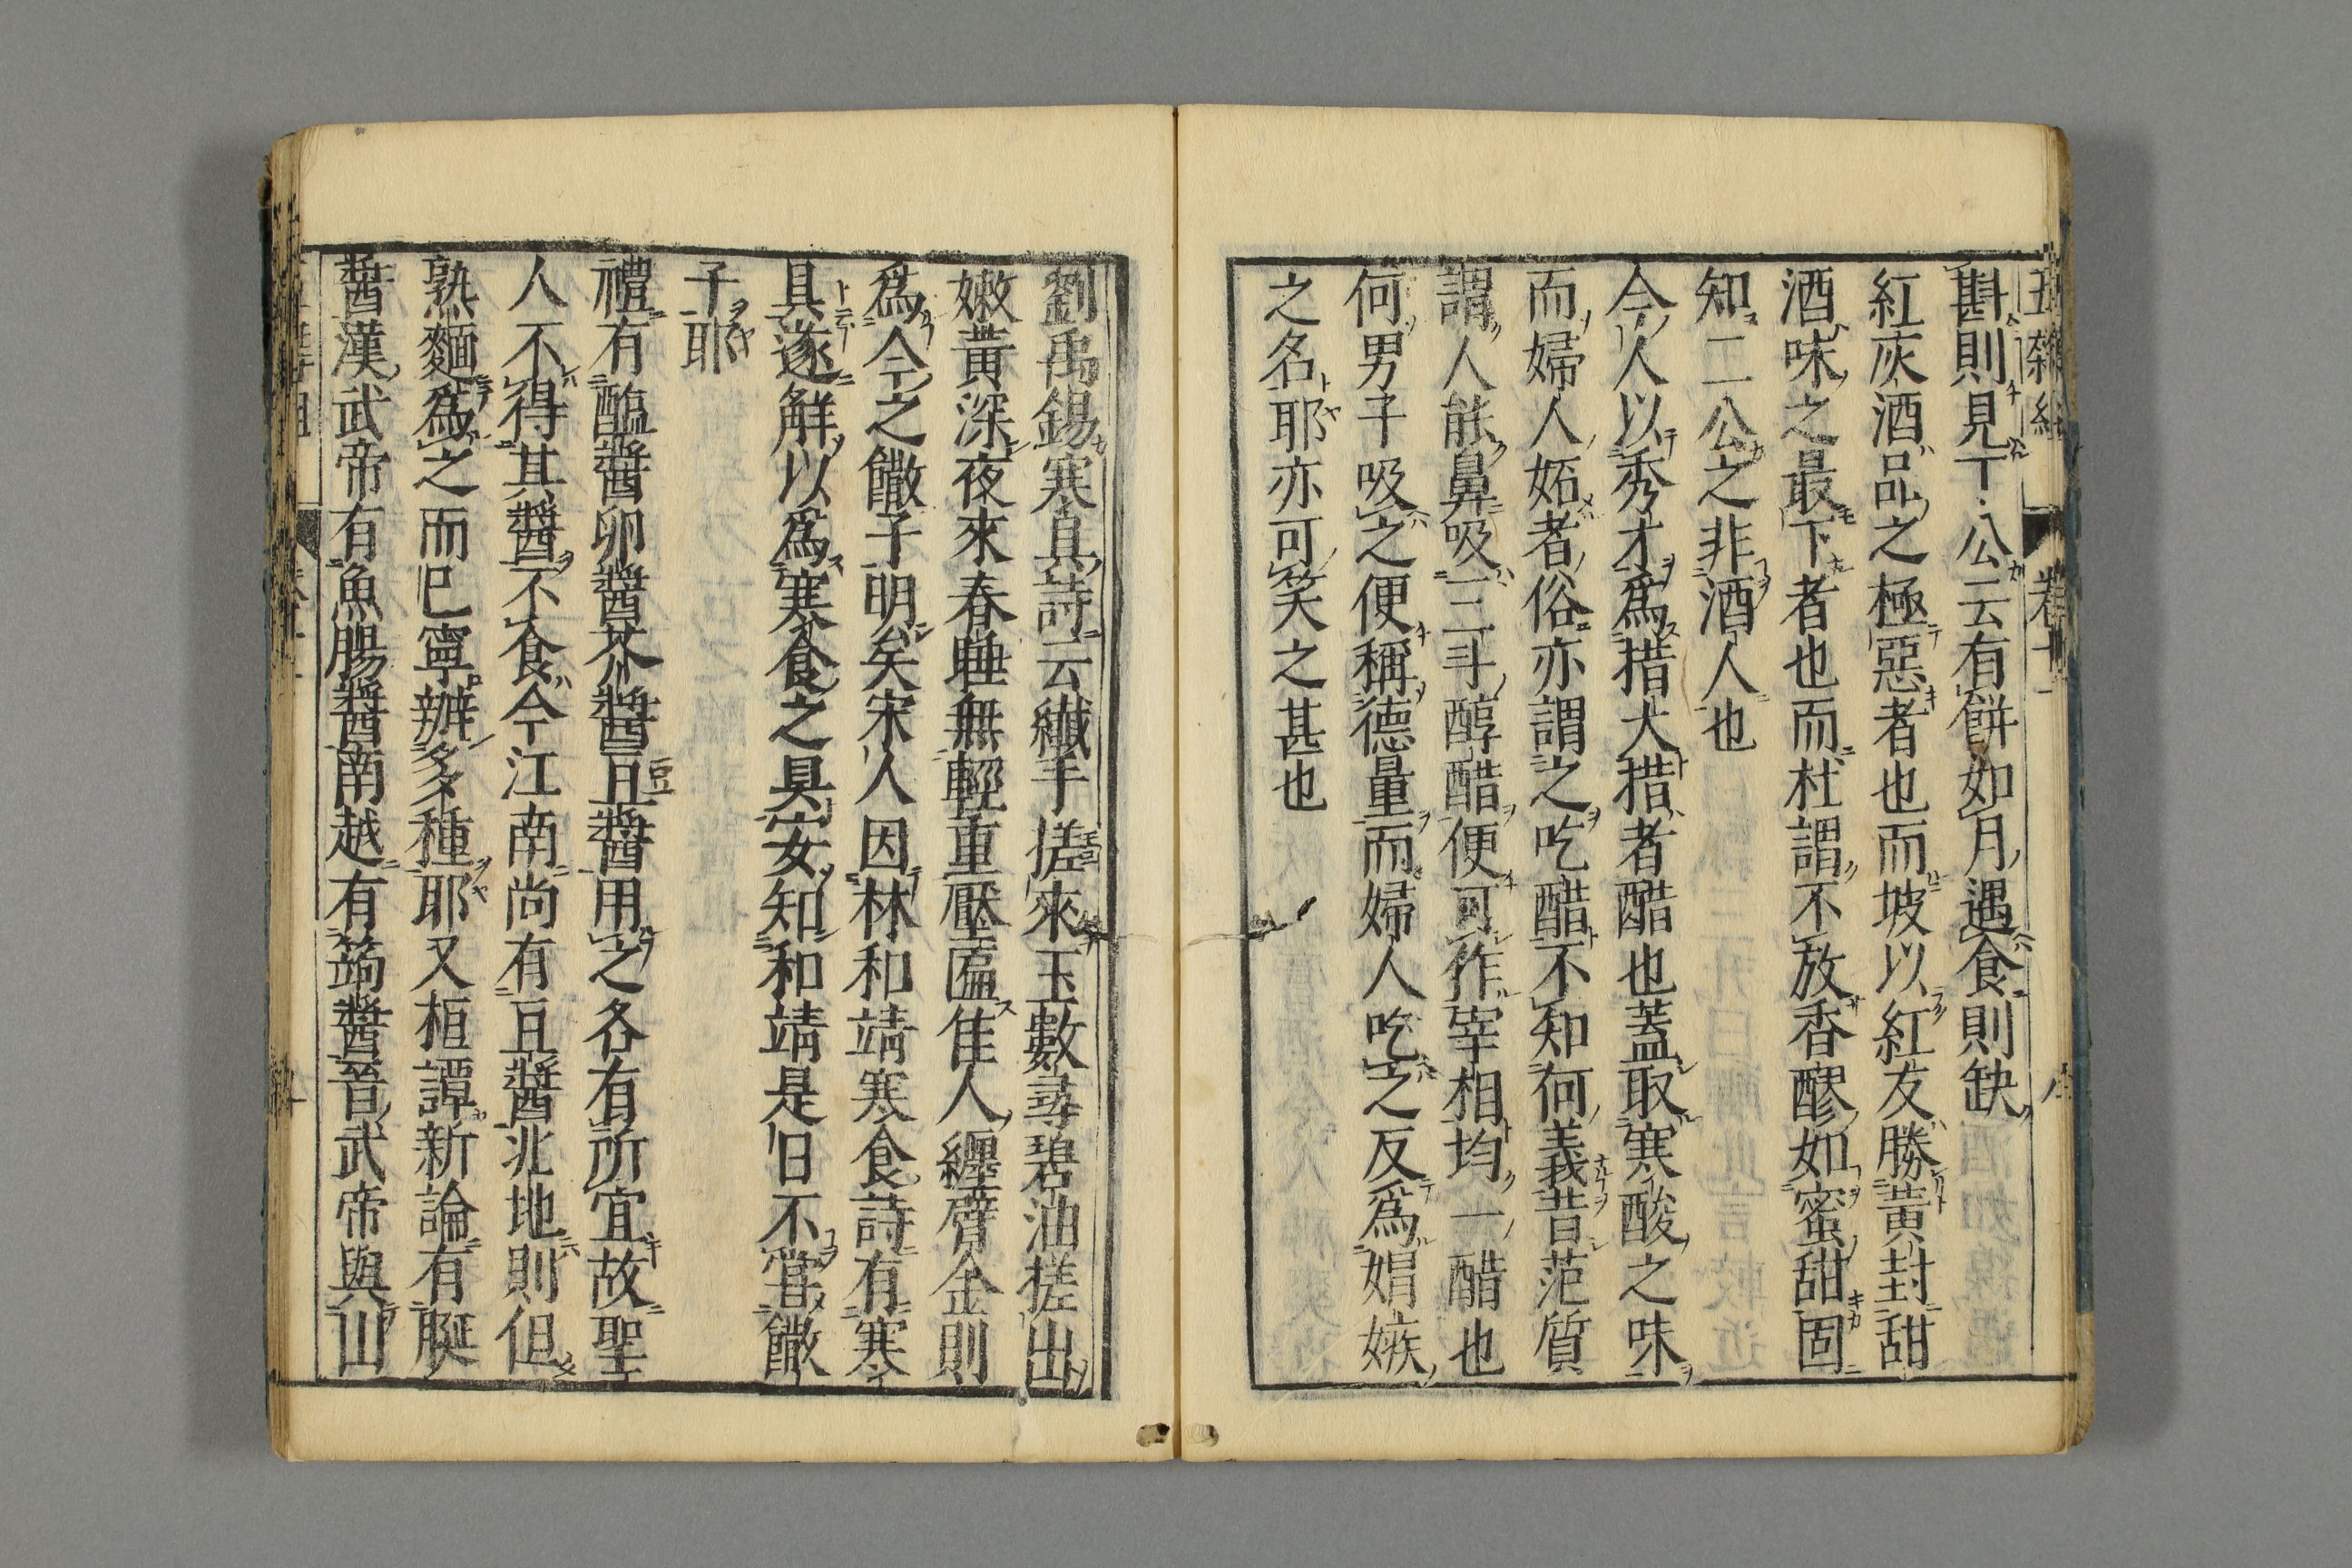 五雜組 卷十一
斟則見丁公云有餠如月遇食則缺
紅灰酒品之極惡者也而坡以紅友勝黃封甜
酒味之最下者也而杜謂不放香醪如蜜甜固
知二公之非酒人也
今人以秀才爲措大措者醋也蓋取寒酸之味
而婦人妬者俗亦謂之吃醋不知何義昔范質
謂人能鼻吸三斗醇醋便可作宰相均一醋也
何男子吸之便稱德量而婦人吃之反爲娼嫉
之名耶亦可笑之甚也
劉禹錫寒具詩云纖手搓來玉數尋碧油搓出
嫩黃深夜來春睡無輕重壓匾佳人纏臂金則
爲今之饊子明矣宋人因林和靖寒食詩有寒
具遂解以爲寒食之具安知和靖是日不嘗饊
子耶
禮有醢醬卵醬芥醬豆醬用之各有所宜故聖
人不得其醬不食今江南尚有豆醬北地則但
熟麵爲之而已寧辦多種耶又桓譚新論有脠
醬漢武帝有魚腸醬南越有蒟醬晉武帝與山